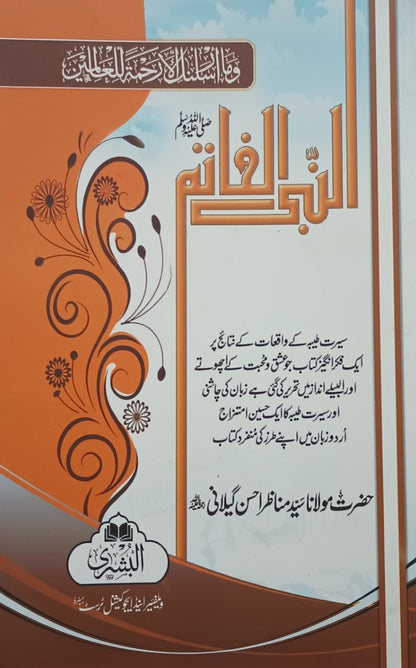 وما أرسلناك إلا رحمة للعالمين
النبی الخاتم
صلی اللہ علیہ وسلم
سیرت طیبہ کے واقعات کے نتائج پر
ایک فکر انگیز کتاب جو عشق و محبت کے اچھوتے
اور البیلے انداز میں تحریر کی گئی ہے زبان کی چاشنی
اور سیرت طیبہ کا ایک حسین امتزاج
اُردو زبان میں اپنے طرز کی منفرد کتاب
حضرت مولانا سیّد مناظر احسن گیلانی
البشریٰ
ویلفیئر اینڈ ایجوکیشنل ٹرسٹ